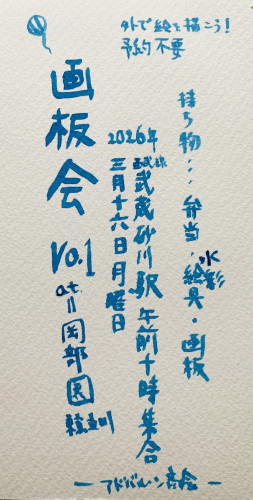 外で絵を描こう!
予約不要
持ち物:・弁当・水彩絵具・画板
2026年
三月十六日月曜日
西武線
武蔵砂川駅午前十時集合
画板会 vo.1
at=岡部園
アドバルーン商会